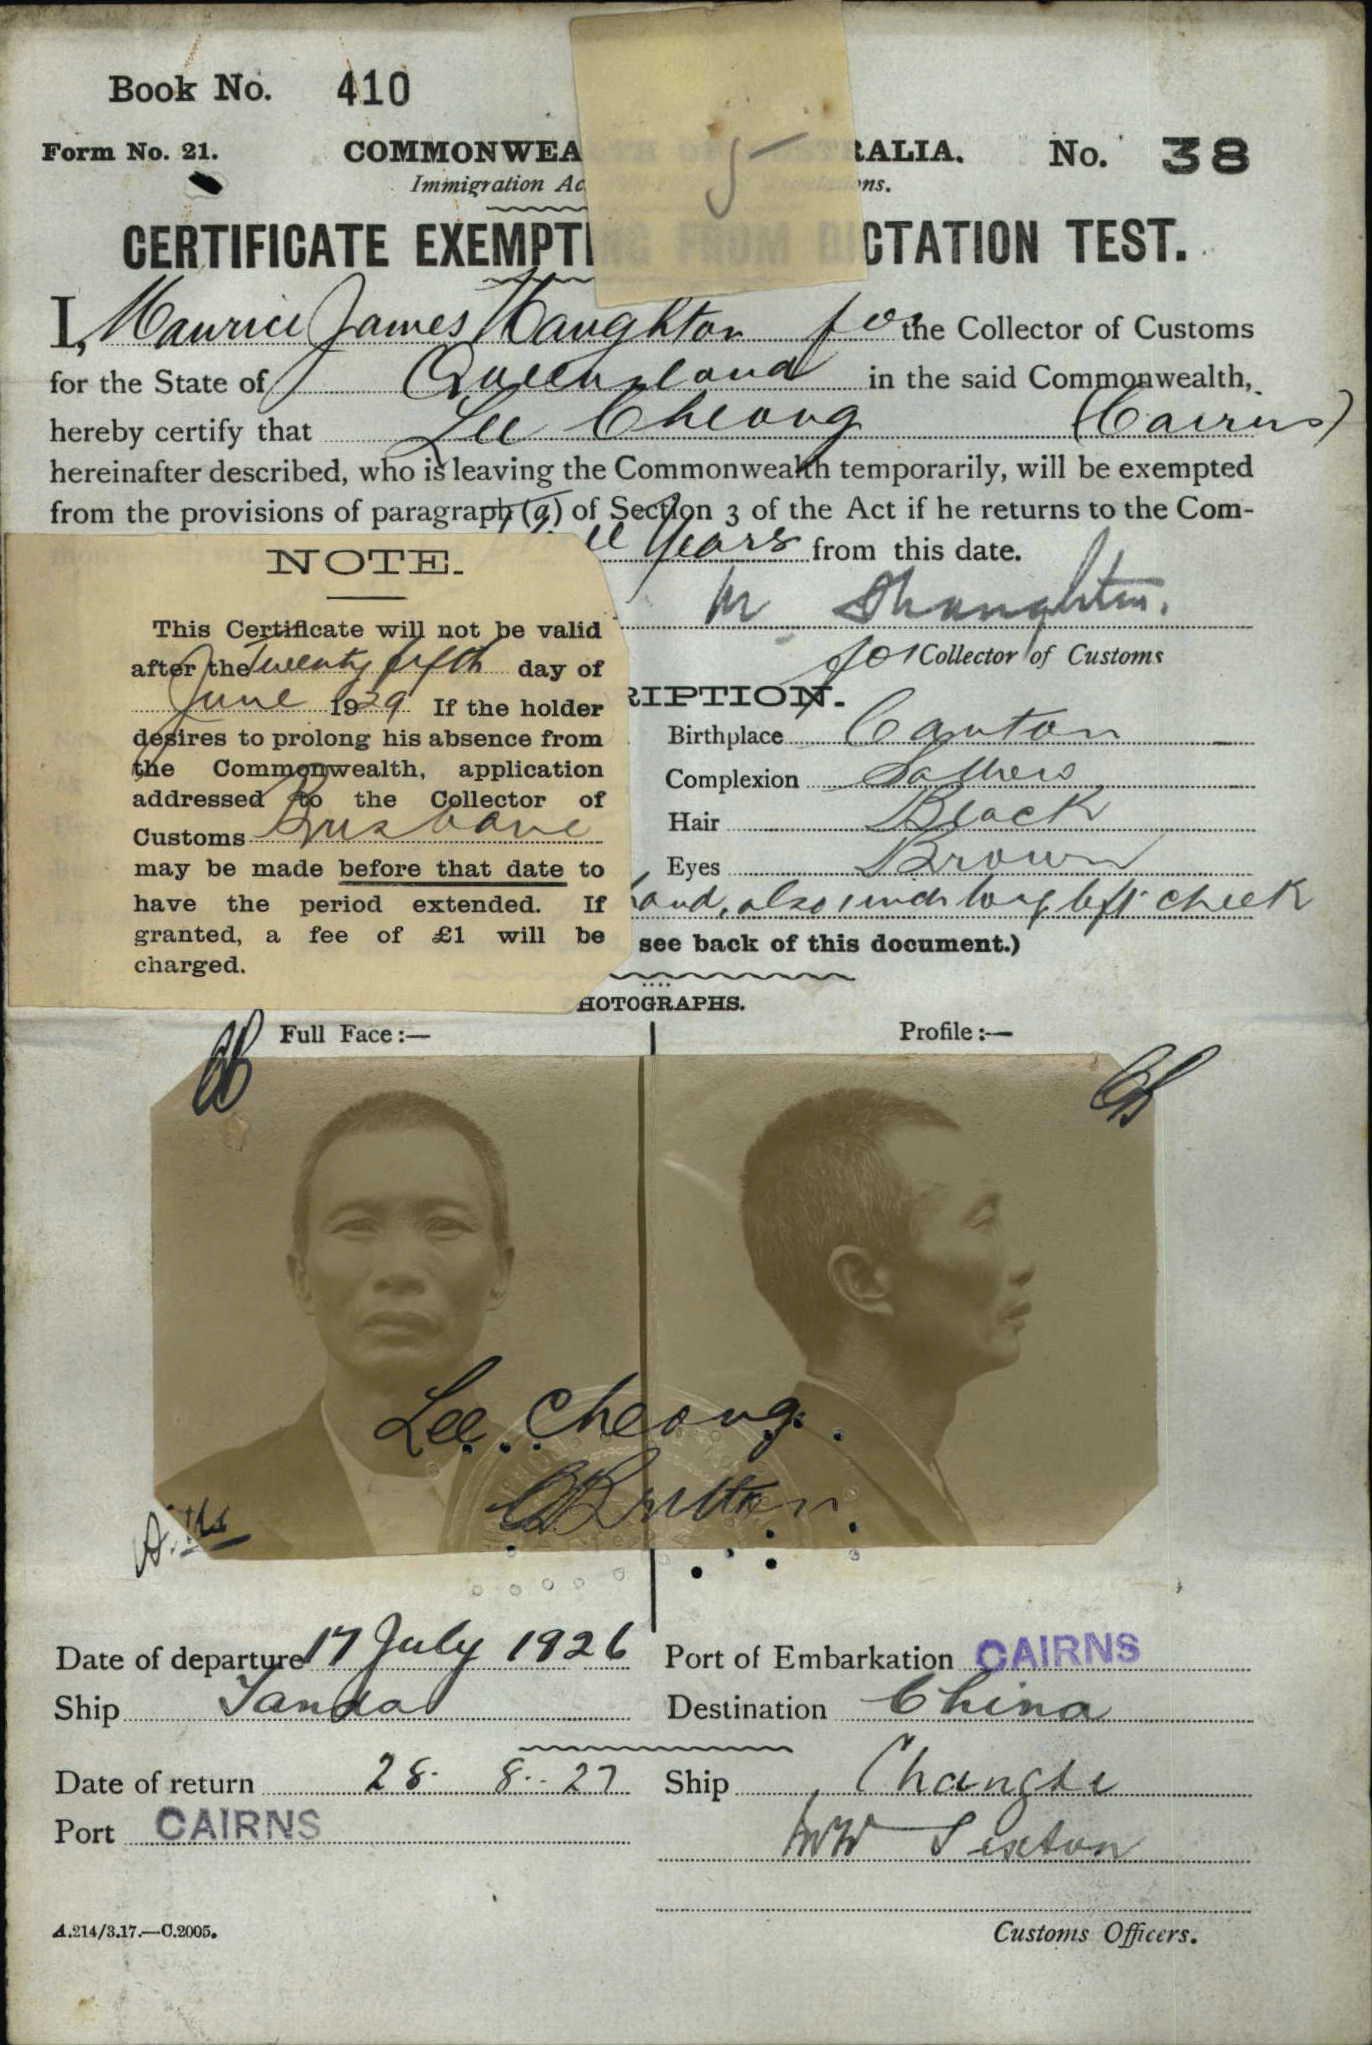 Book No. 410
Form No. 21. COMMONWEALTH OF AUSTRALIA. No. 38
5
Immigration Ac
CERTIFICATE EXEMPTING FROM DICTATION TEST.
I, Maurice James Naughton for the Collector of Customs
for the State of Queensland in the said Commonwealth,
hereby certify that Lee Cheong (Cairns)
hereinafter described, who is leaving the Commonwealth temporarily, will be exempted
from the provisions of paragraph (a) of Section 3 of the Act if he returns to the Com-
Years from this date.
for Collector of Customs
RIPTION.
NOTE.
This Certificate will not be valid
after the Twenty fifth day of
June 1929 If the holder
desires to prolong his absence from
the Commonwealth, application
addressed to the Collector of
Customs Brisbane
may be made before that date to
have the period extended. If
granted, a fee of £1 will be
charged.
Birthplace Canton
Complexion Sallow
Hair Black
Eyes Brown
hand, also 1 inch long left cheek
see back of this document.)
HOTOGRAPHS.
Full Face :— Profile :—
Lee Cheong
Date of departure 17 July 1926 Port of Embarkation CAIRNS
Ship Tanda Destination China
Date of return 28. 8. 27 Ship Changte
Port CAIRNS
Sexton
A.214/3.17.—C.2005. Customs Officers.